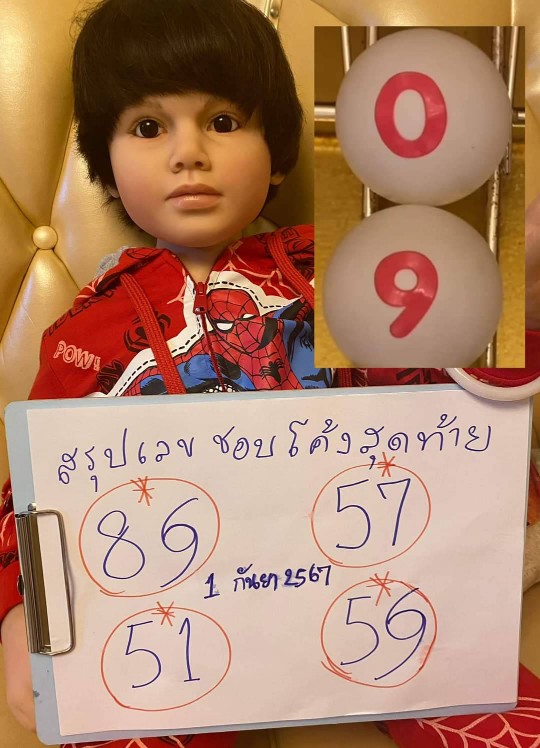 0
9
POW!
สรุปเลข ชอบ โค้งสุดท้าย
89 57
1 กันยา 2567
51 59